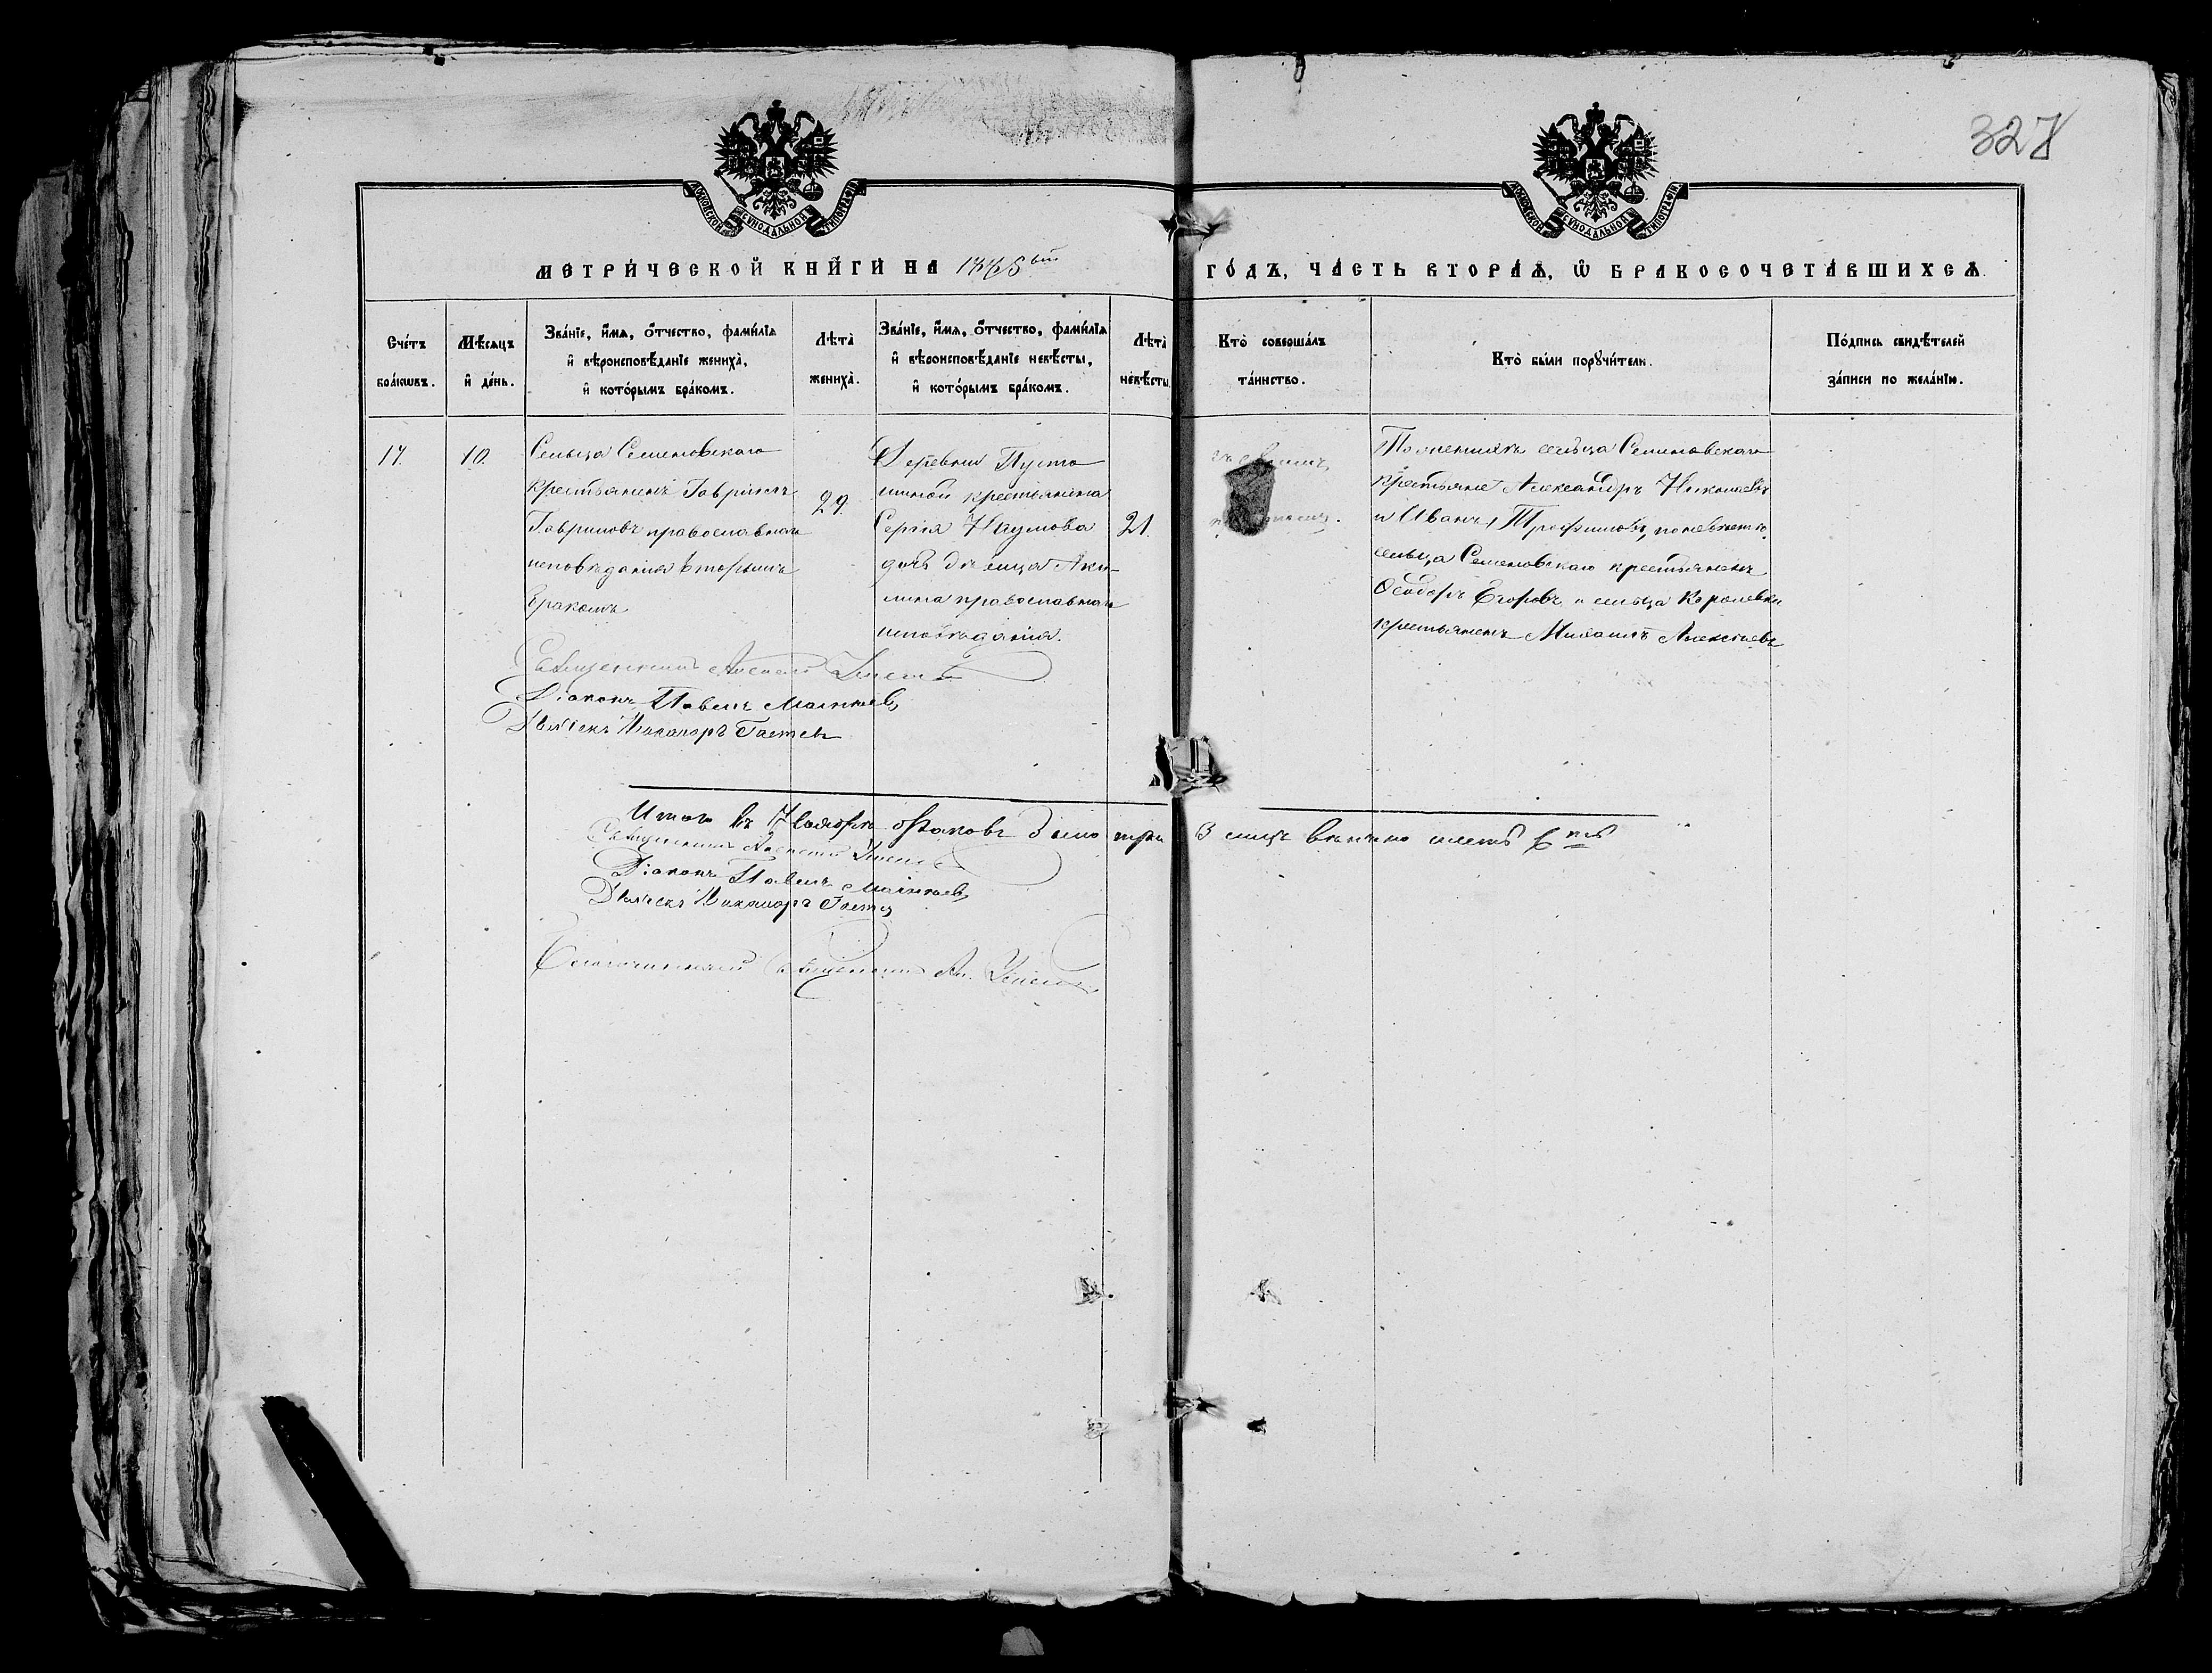 327
МОСКОВСКОЙ СУНОДАЛЬНОЙ ТИПОГРАФІИ
МОСКОВСКОЙ СУНОДАЛЬНОЙ ТИПОГРАФІИ
МЕТРИ́ЧЕСКОЙ КНИ́ГИ НА
ГО́ДЪ, ЧА́СТЬ ВТОРА́Ѧ, Ѽ БРАКОСОЧЕТА́ВШИХСѦ.
Сче́тъ бра́кѡвъ.
Мѣ́сѧцъ и҆ де́нь.
Зва́нїе, и҆́мѧ, ѻ҆́тчество, фами́лїѧ
и҆ вѣроисповѣ́данїе жениха̀,
и҆ кото́рымъ бра́комъ.
Лѣта̀ жениха̀.
Зва́нїе, и҆́мѧ, ѻ҆́тчество, фами́лїѧ
и҆ вѣроисповѣ́данїе невѣ́сты,
и҆ кото́рымъ бра́комъ.
Лѣта̀ невѣ́сты
Кто̀ соверша́лъ
та́инство.
Кто̀ бы́ли порꙋчи́тели.
По́дпись свидѣ́телей
за́писи по жела́нїю.
17.
10.
Сельца Семеновскаго
крестьянинъ Гавриилъ
Гавриловъ православнаго
исповѣданія вторымъ
бракомъ
29.
Деревни Пусто
шиной крестьянина
Сергія Наумова
дочь дѣвица Аки-
лина православнаго
исповѣданія.
21.
По женихѣ сельца Семеновскаго
крестьяне Александръ Николаевъ
и Иванъ Трофимовъ, по невѣстѣ
сельца Семеновскаго крестьянинъ
Ѳеодоръ Егоровъ и сельца Королевки
крестьянинъ Михаилъ Алексѣевъ
Священникъ Алексѣй
Діаконъ Павелъ
Дьячекъ Никаноръ
Итого въ Ноябрѣ браковъ было три
Священникъ Алексѣй
Діаконъ Павелъ
Дьячекъ Никаноръ
Благочинный Священникъ Ал.